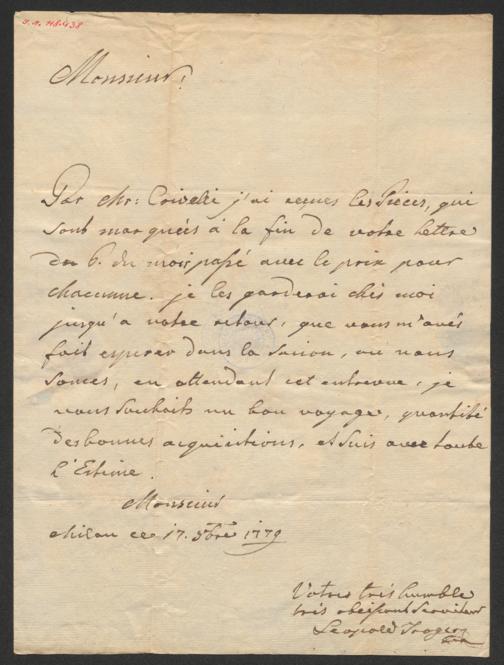 Monsieur!
Par Mr: Crivelli j'ai reçues les Pièces, qui
sont marquées à la fin de votre lettre
du 6. du mois passé avec le prix pour
chacunne. je les garderai chés moi
jusqu'a votre retour, que vous m'avés
fait esperer dans la saison, où nous
somes, en attendant cet entrevue, je
vous souhaits un bon voyage, quantité
des bonnes acquisitions, et suis avec toute
l'Estime.
Monsieur
Milan ce 17. 1779
Votre très humble
très obeissant Serviteur
Leopold